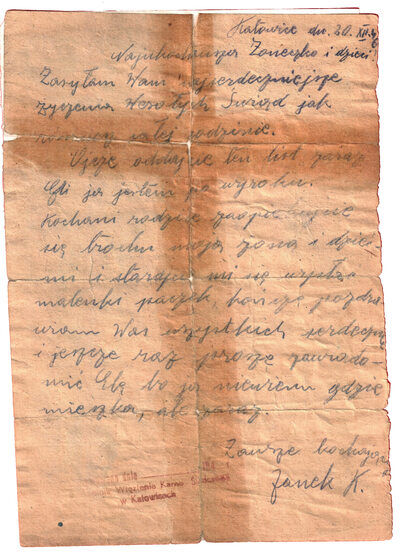 Katowice dn. 20. XII.
Najukochańsza Żoneczko i dzieci!
Zasyłam Wam najserdeczniejsze
życzenia Wesołych Świąd jak
całej rodzinie.
Ojcze oddajcie ten list zaraz
Eli ja jestem po wyroku.
Kochani rodzice zaopiekujcie
się trochu moją żoną i dzie-
mi i starajcie mi się wysłać
malenki paczek, kończę pozdra-
wiam Was wszystkich serdecznie
i jeszcze raz proszę zawiado-
mić Elę bo ja niewiem gdzie
mieszka, ale zaraz.
Zawsze kochający
Janek K.
dnia
Więzienie Karno
w Katowicach